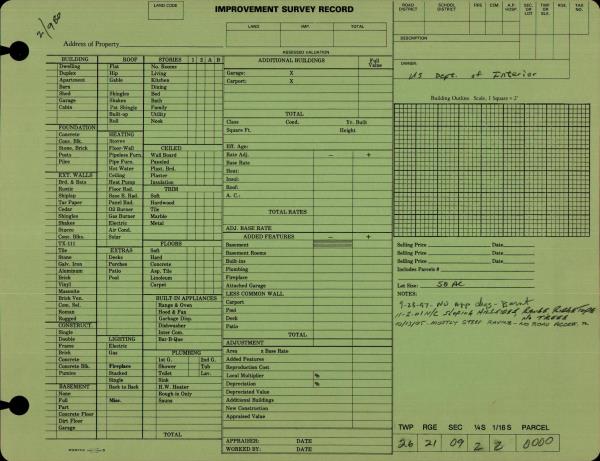 LAND CODE
IMPROVEMENT SURVEY RECORD
2/980
Address of Property
LAND IMP. TOTAL
ASSESSED VALUATION
ROAD DISTRICT SCHOOL DISTRICT FIRE CEM. A.P. HOSP. SEC. OR LOT TWP. OR BLK. RGE. TAX NO.
DESCRIPTION
OWNER:
US Dept. of Interior
BUILDING ROOF STORIES 1 2 A B
Dwelling Flat No. Rooms
Duplex Hip Living
Apartment Gable Kitchen
Barn Dining
Shed Shingles Bed
Garage Shakes Bath
Cabin Pat Shingle Family
Built-up Utility
Roll Nook
FOUNDATION
Concrete HEATING
Conc. Blk. Stoves CEILED
Stone, Brick Floor-Wall Wall Board
Posts Pipeless Furn. Paneled
Piles Pipe Furn. Plast. Brd.
Hot Water Ceiling
EXT. WALLS Ceiling Plaster
Brd. & Bats Heat Pump Insulation
Rustic Floor Rad. TRIM
Shiplap Base E. Rad. Soft
Tar Paper Panel Rad. Hardwood
Cedar Oil Burner Tile
Shingles Gas Burner Marble
Shakes Electric Metal
Stucco Air Cond.
Conc. Blks. Solar
TX-111 FLOORS
Tile EXTRAS Soft
Stone Decks Hard
Galv. Iron Porches Concrete
Aluminum Patio Asp. Tile
Brick Pool Linoleum
Vinyl Carpet
Masonite
Brick Ven. BUILT-IN APPLIANCES
Com. Sel. Range & Oven
Roman Hood & Fan
Rugged Garbage Disp.
CONSTRUCT. Dishwasher
Single Inter Com.
Double LIGHTING Bar-B-Que
Frame Electric
Brick Gas PLUMBING
Concrete 1st G. 2nd G.
Concrete Blk. Fireplace Shower Tub
Pumice Stacked Toilet Lav.
Single Sink
BASEMENT Back to Back H.W. Heater
None Rough in Only
Full Misc. Sauna
Part
Concrete Floor
Dirt Floor
Garage TOTAL
ADDITIONAL BUILDINGS Full Value
Garage: X
Carport: X
TOTAL
Class Cond. Yr. Built
Square Ft. Height
Eff. Age:
Rate Adj. — +
Base Rate
Heat:
Insul:
Roof:
A. C.:
TOTAL RATES
ADJ. BASE RATE
ADDED FEATURES — +
Basement
Basement Rooms
Built-ins
Plumbing
Fireplace
Attached Garage
LESS COMMON WALL
Carport
Pool
Deck
Patio
TOTAL
ADJUSTMENT
Area x Base Rate
Added Features
Reproduction Cost
Local Multiplier %
Depreciation %
Depreciated Value
Additional Buildings
New Construction
Appraised Value
APPRAISER: DATE
WORKED BY: DATE
Building Outline Scale, 1 Square = 2'
Selling Price Date
Selling Price Date
Selling Price Date
Includes Parcels #
Lot Size: 50 AC
NOTES:
TWP RGE SEC ¼S 1/16S PARCEL
26 21 09 Z Z 0000